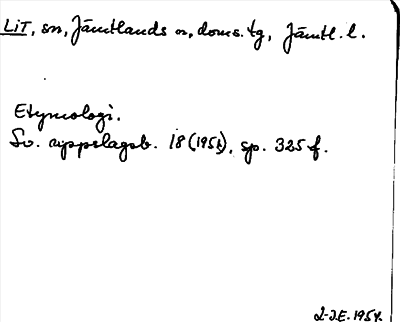 LiT, sn, Jämtlands n, doms.tg, Jämtl. l.
Etymologi.
Sv. uppslagsb. 18 (1951), sp. 325 f.
L-J.E. 1954.